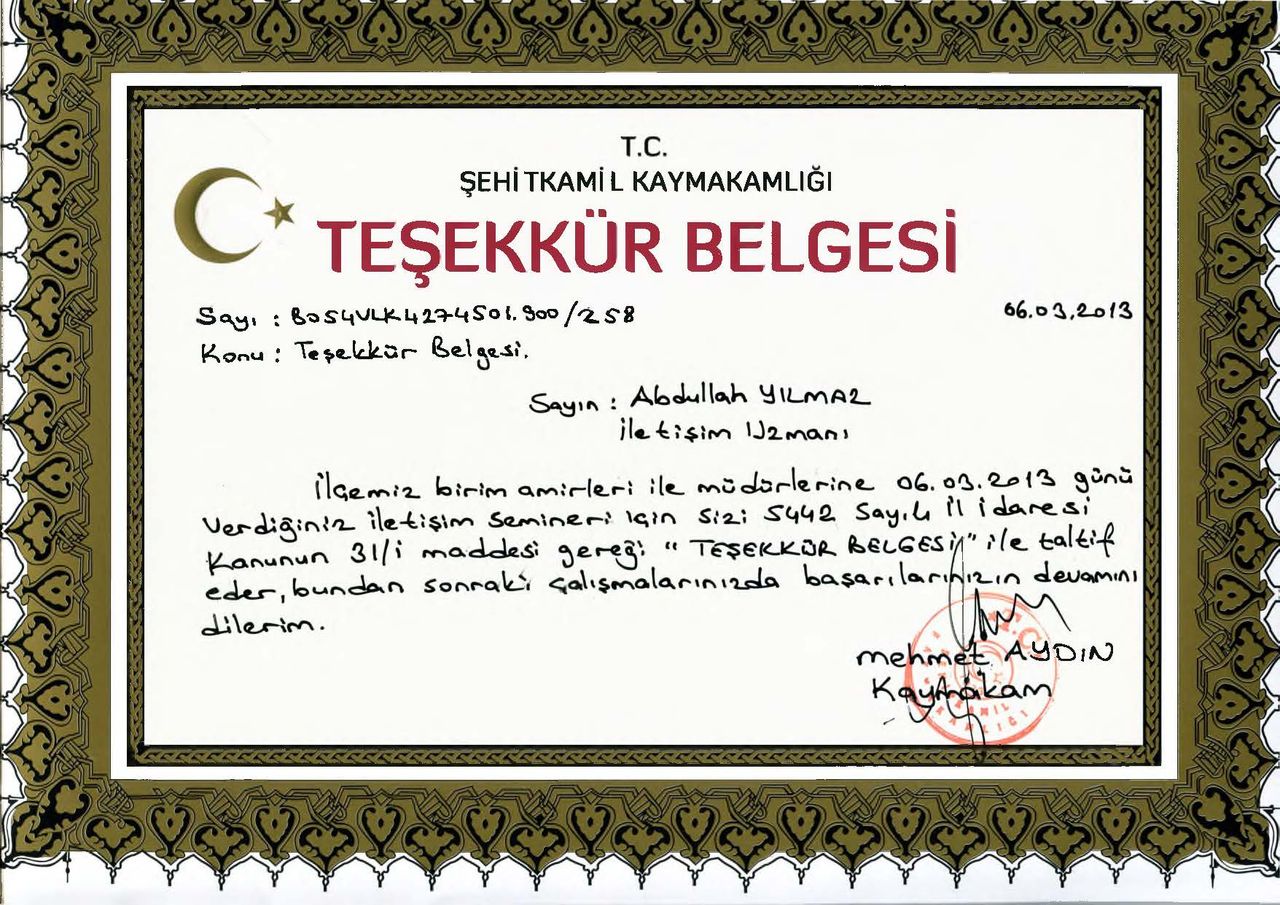 T.C.
ŞEHİTKAMİL KAYMAKAMLIĞI
TEŞEKKÜR BELGESİ
Sayı : B054VLK4274501.900/258
06.03.2013
Konu : Teşekkür Belgesi.
Sayın : Abdullah YILMAZ
İletişim Uzmanı
İlçemiz birim amirleri ile müdürlerine 06.03.2013 günü
Verdiğiniz iletişim Semineri için sizi 5442 Sayılı İl idaresi
Kanunun 31/i maddesi gereği "TEŞEKKÜR BELGESİ" ile taltif
eder, bundan sonraki çalışmalarınızda başarılarınızın devamını
dilerim.
T.C.
mehmet AYDIN
Kaymakam